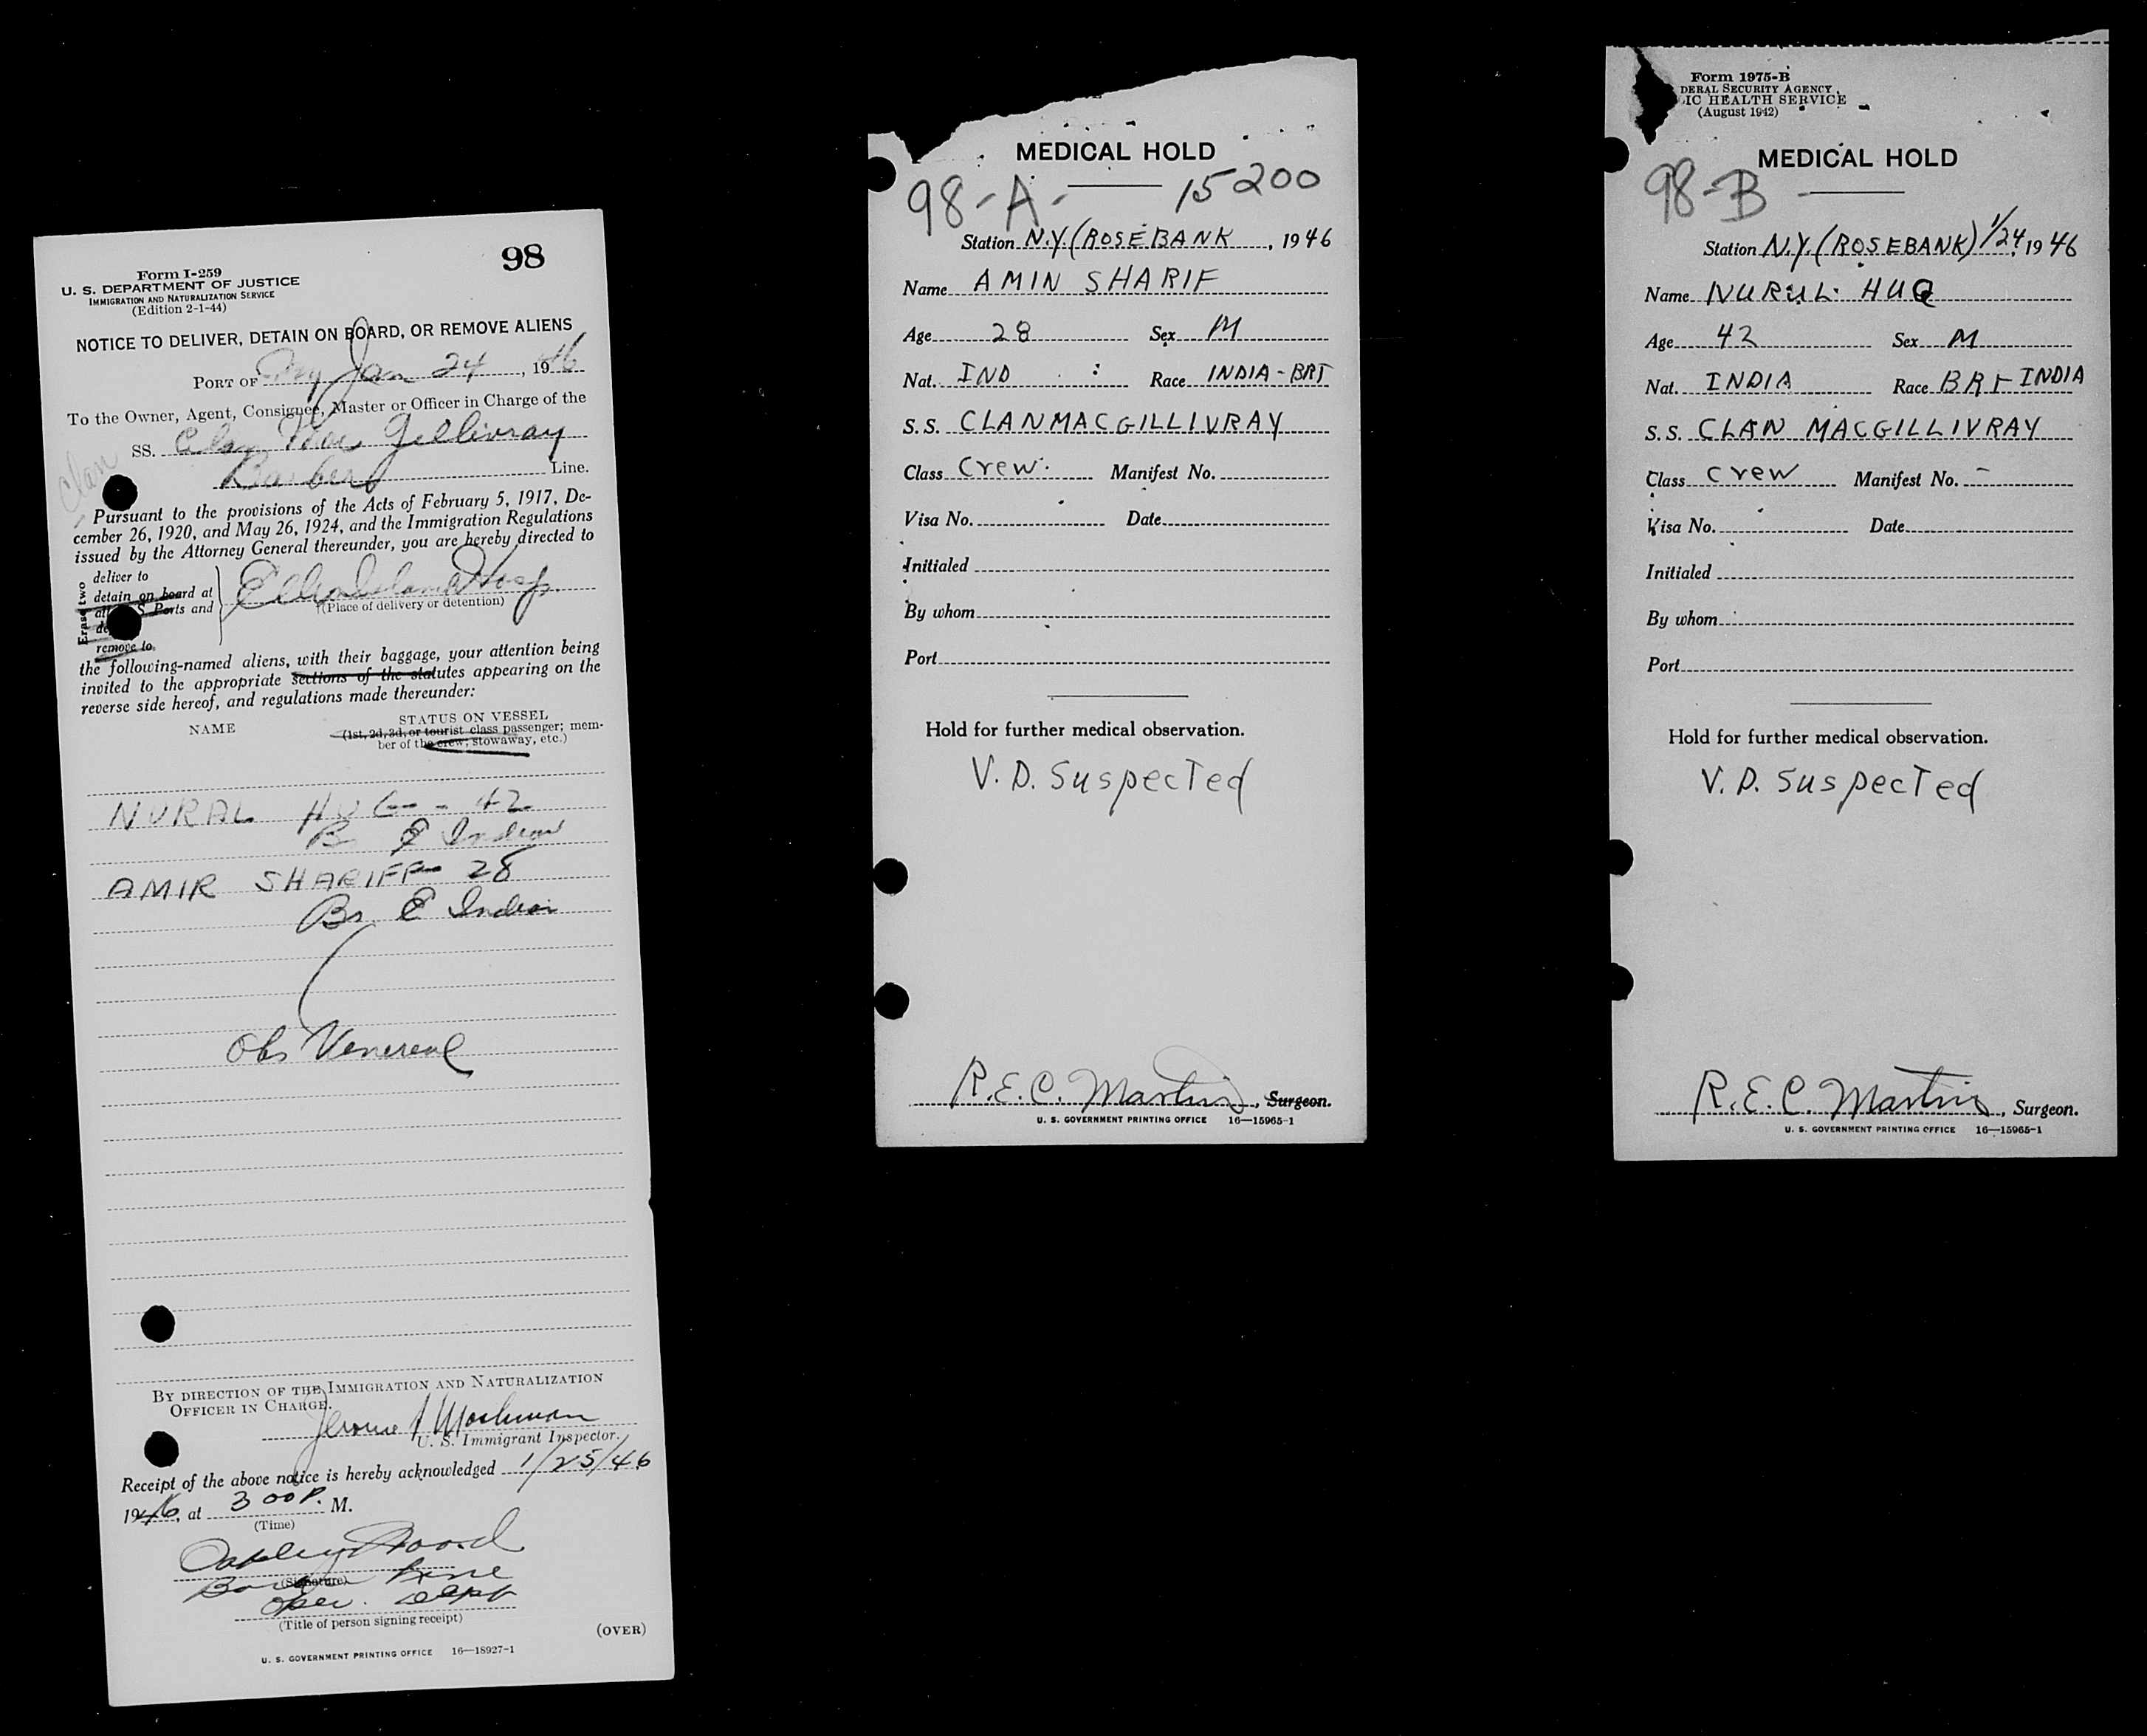 98
Form I-259
U. S. DEPARTMENT OF JUSTICE
IMMIGRATION AND NATURALIZATION SERVICE
(Edition 2-1-44)
NOTICE TO DELIVER, DETAIN ON BOARD, OR REMOVE ALIENS
PORT OF NY Jan 24, 1946
To the Owner, Agent, Consignee, Master or Officer in Charge of the
SS. Clan Mac Gillivray
Clan
Barber Line.
Pursuant to the provisions of the Acts of February 5, 1917, De-
cember 26, 1920, and May 26, 1924, and the Immigration Regulations
issued by the Attorney General thereunder, you are hereby directed to
Erase two
deliver to
detain on board at
all S Ports and
de
remove to
Ellis Island Hosp.
(Place of delivery or detention)
the following-named aliens, with their baggage, your attention being
invited to the appropriate sections of the statutes appearing on the
reverse side hereof, and regulations made thereunder:
NAME
STATUS ON VESSEL
(1st, 2d, 3d, or tourist class passenger; mem-
ber of the crew; stowaway, etc.)
NURAL HUG - 42
Br E Indian
AMIR SHARIFF - 28
Br E Indian
Obs Venereal
BY DIRECTION OF THE IMMIGRATION AND NATURALIZATION
OFFICER IN CHARGE.
Jerome
U. S. Immigrant Inspector.
Receipt of the above notice is hereby acknowledged 1/25/46
1946, at 3 00 P. M.
(Time)
Oakley Wood
(Signature)
Barber Line
Oper. Dept
(Title of person signing receipt)
(OVER)
U. S. GOVERNMENT PRINTING OFFICE 16—18927-1
MEDICAL HOLD
98-A- 15200
Station N.Y. (ROSEBANK, 1946
Name AMIN SHARIF
Age 28 Sex M
Nat. IND Race INDIA-BRT
S.S. CLANMACGILLIVRAY
Class Crew. Manifest No.
Visa No. Date
Initialed
By whom
Port
Hold for further medical observation.
V.D. Suspected
R.E.C. Martin, Surgeon.
U. S. GOVERNMENT PRINTING OFFICE 16—15965-1
Form 1975-B
DERAL SECURITY AGENCY
IC HEALTH SERVICE
(August 1942)
MEDICAL HOLD
98-B
Station N.Y. (ROSEBANK) 1/24, 1946
Name NURUL HUQ
Age 42 Sex M
Nat. INDIA Race BRT INDIA
S.S. CLAN MACGILLIVRAY
Class crew Manifest No. -
Visa No. Date
Initialed
By whom
Port
Hold for further medical observation.
V.D. Suspected
R.E.C Martin, Surgeon.
U. S. GOVERNMENT PRINTING OFFICE 16—15965-1